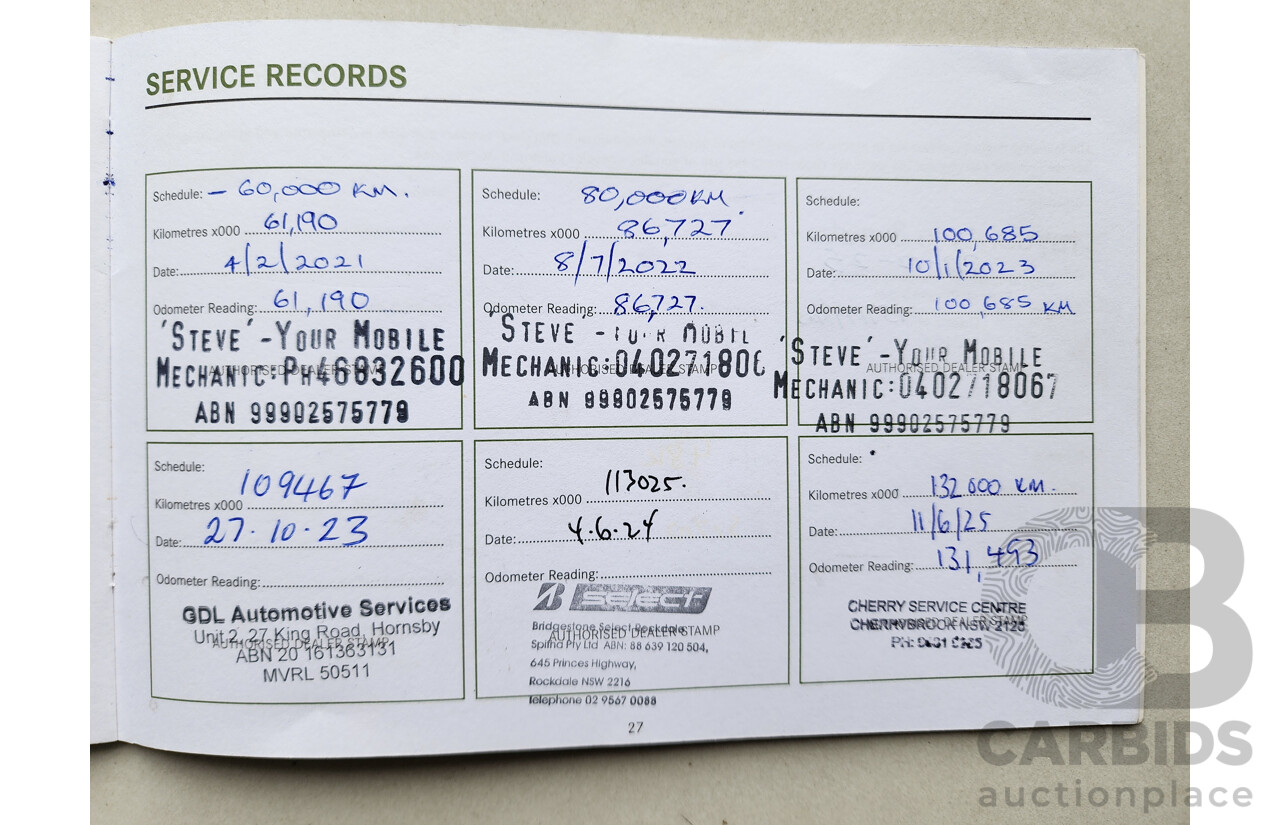 SERVICE RECORDS
Schedule: – 60,000 KM.
Kilometres x000 61,190
Date: 4/2/2021
Odometer Reading: 61,190
AUTHORISED DEALER STAMP
'STEVE'-YOUR MOBILE
MECHANIC:PH46832600
ABN 99902575779
Schedule: 80,000KM.
Kilometres x000 86,727
Date: 8/7/2022
Odometer Reading: 86,727.
AUTHORISED DEALER STAMP
'STEVE'-YOUR MOBIL
MECHANIC:040271806
ABN 99902575779
Schedule:
Kilometres x000 100,685
Date: 10/1/2023
Odometer Reading: 100,685 KM
AUTHORISED DEALER STAMP
'STEVE'-YOUR MOBILE
MECHANIC:0402718067
ABN 99902575779
Schedule:
Kilometres x000 109467
Date: 27·10·23
Odometer Reading:
AUTHORISED DEALER STAMP
GDL Automotive Services
Unit 2, 27 King Road, Hornsby
ABN 20 161363131
MVRL 50511
Schedule:
Kilometres x000 113025.
Date: 4.6.24
Odometer Reading:
AUTHORISED DEALER STAMP
B select
Bridgestone Select Rockdale
Spifha Pty Ltd ABN: 88 639 120 504,
645 Princes Highway,
Rockdale NSW 2216
Telephone 02 9567 0088
Schedule:
Kilometres x000 132000 KM.
Date: 11/6/25
Odometer Reading: 131,493
AUTHORISED DEALER STAMP
CHERRY SERVICE CENTRE
CHERRYBROOK NSW 2126
PH:
27
CARBIDS
auctionplace